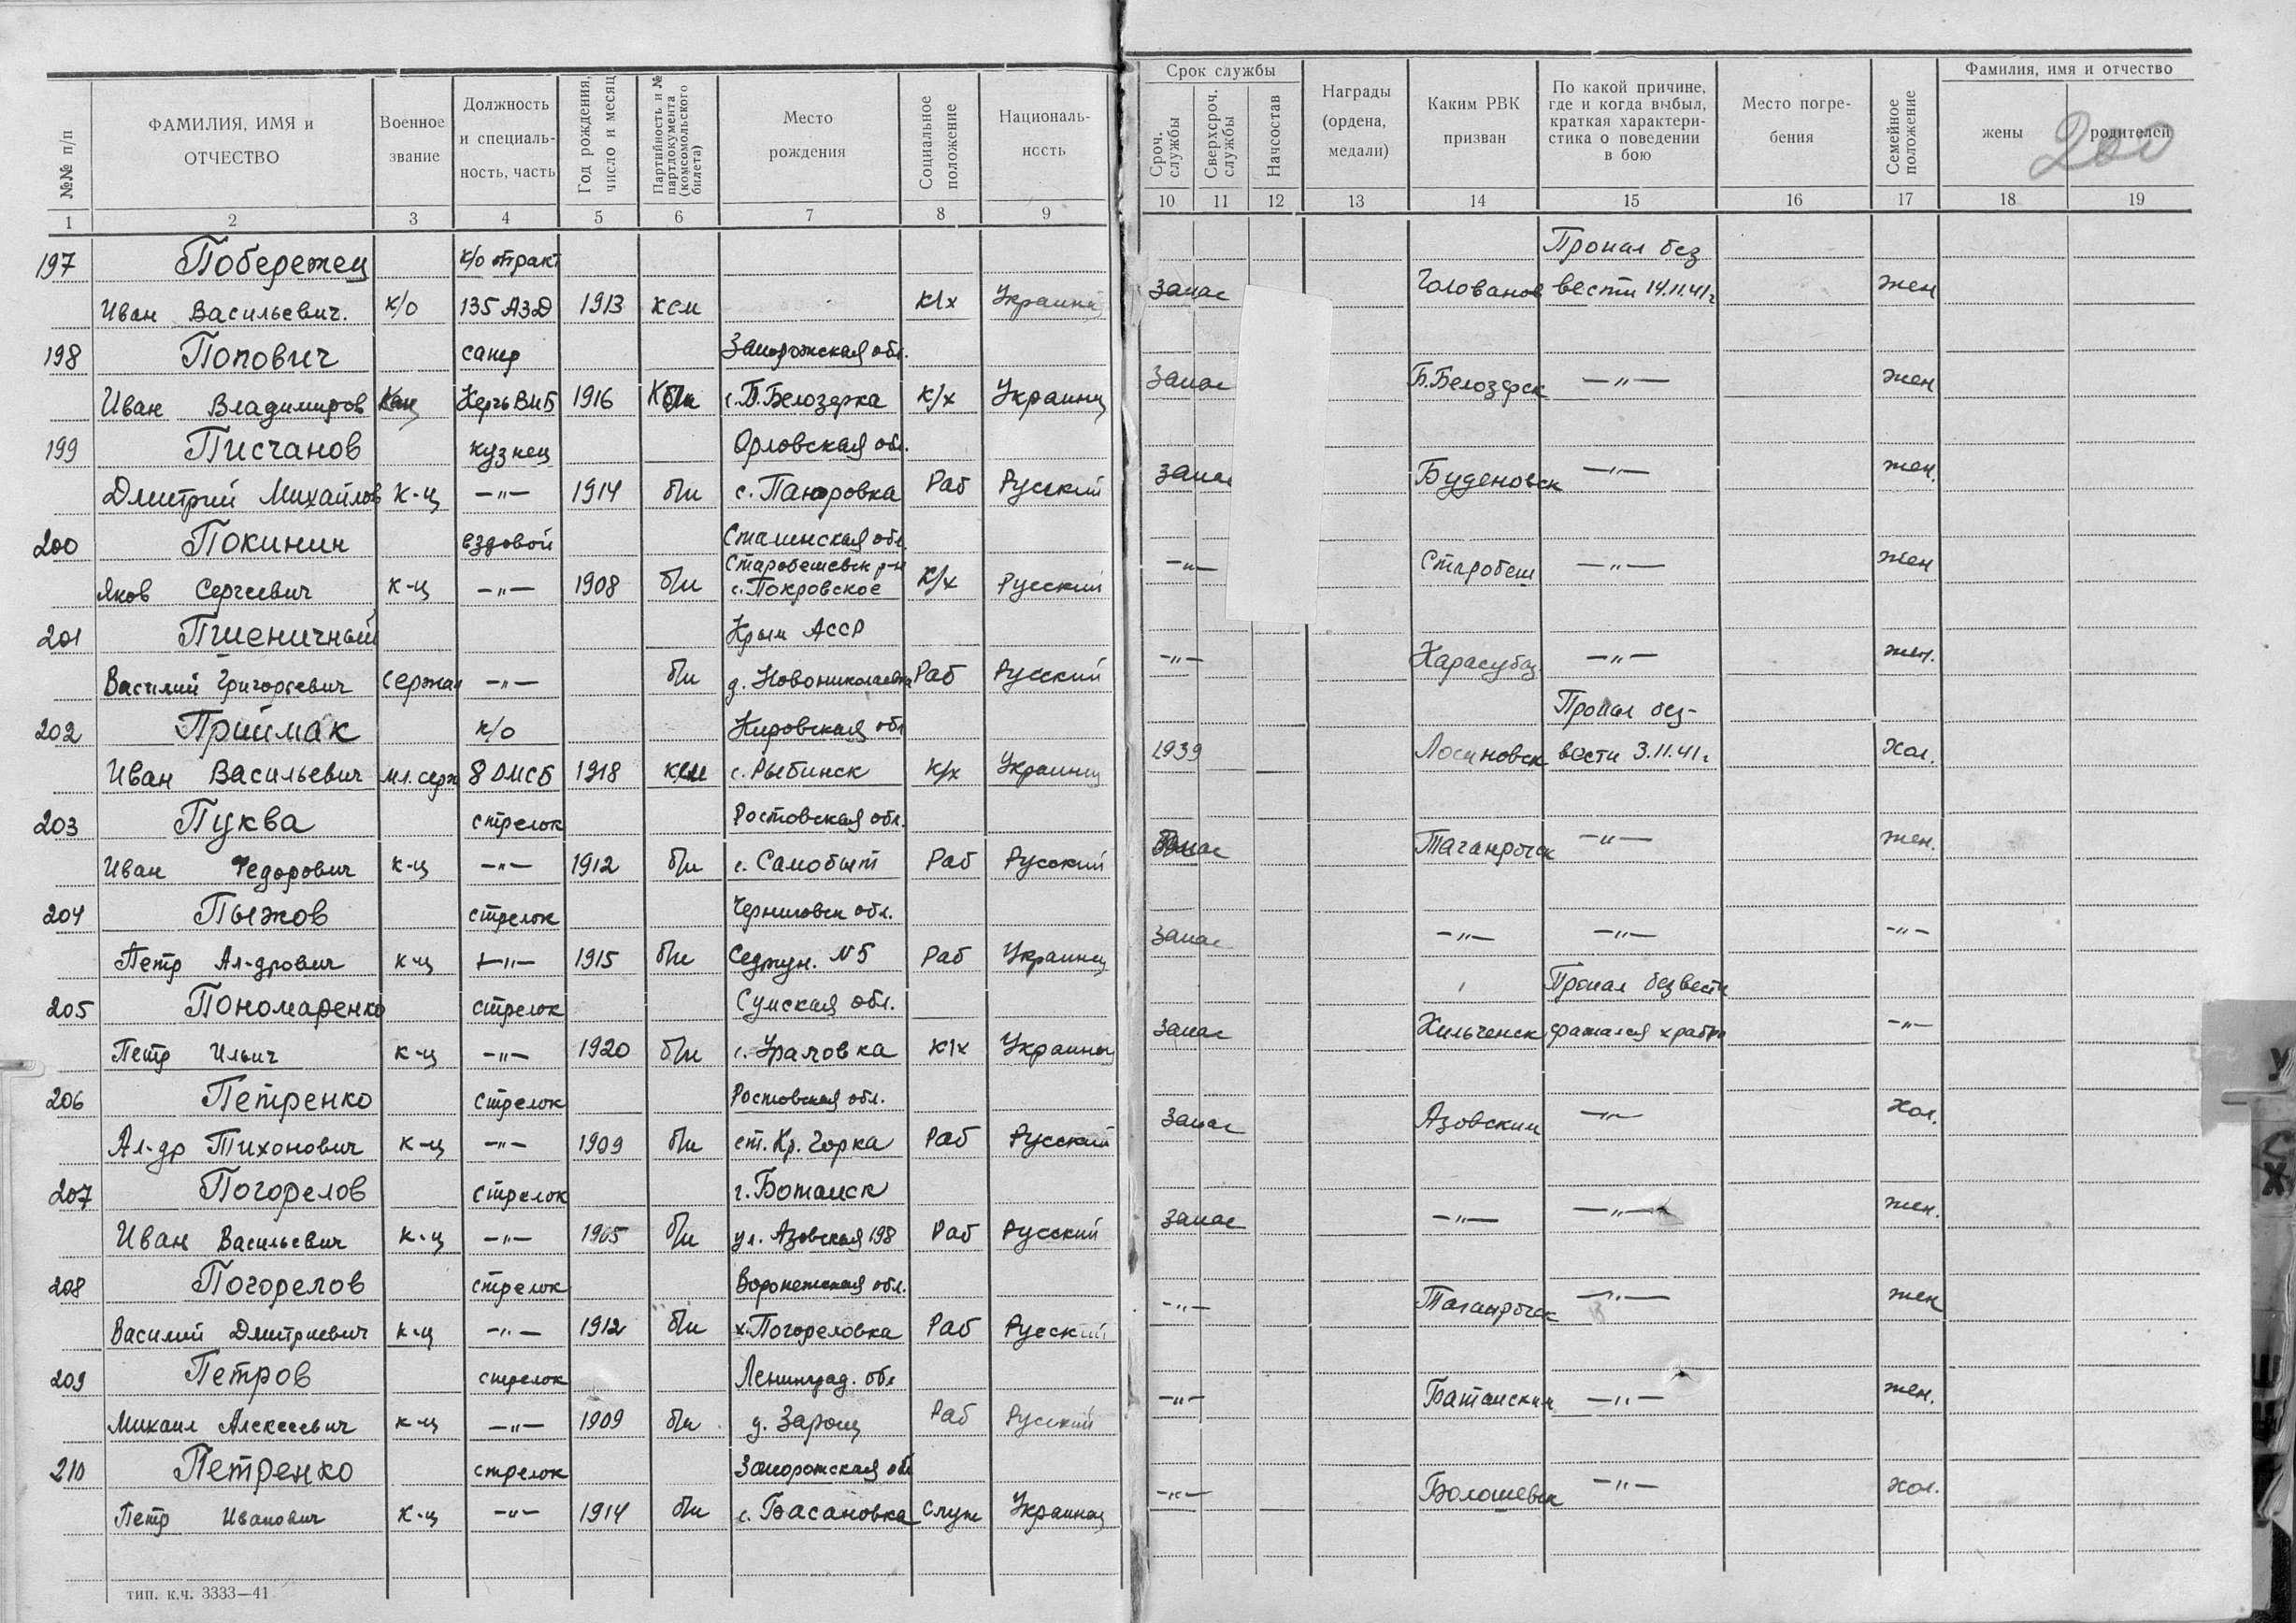 Срок службы
Фамилия, имя и отчество
№№ п/п
ФАМИЛИЯ, ИМЯ и ОТЧЕСТВО
Военное звание
Должность и специальность, часть
Год рождения, число и месяц
Партийность и № партдокумента (комсомольского билета)
Место рождения
Социальное положение
Националь-ность
Сроч. службы
Сверхсроч. службы
Начсостав
Награды (ордена, медали)
Каким РВК призван
По какой причине, где и когда выбыл, краткая характери-стика о поведении в бою
Место погре-бения
Семейное положение
жены
родителей
200
1 2 3 4 5 6 7 8 9 10 11 12 13 14 15 16 17 18 19
197 Побережец к/о Пропал без
Иван Васильевич. к/о 135 АЗД 1913 ксм к/х Украинец запас Голованов вести 14.11.41г жен
198 Попович сапер Запорожская обл.
Иван Владимиров 1916 с. Б. Белозерка к/х Украинц запас Б. Белозерск —"— жен
199 Писчанов кузнец Орловская обл.
Дмитрий Михайлов к-ц —"— 1914 б/п Раб Русский запас Буденовск —"— жен.
200 Покинин ездовой Сталинская обл.
Старобешевск р-н
Яков Сергеевич к-ц —"— 1908 б/п с. Покровское к/х Русский —"— Старобеш —"— жен
201 Пшеничный Крым АССР
Василий Григорьевич сержан —"— б/п д. Новониколаевка Раб Русский —"— Карасубаз. —"— жен.
202 Приймак к/о Кировская обл Пропал без-
Иван Васильевич мл. серж 8 ОМСБ 1918 ксм с. Рыбинск к/х Украинц 1939 Лосиновск вести 3.11.41г Хол.
203 Пуква стрелок Ростовская обл.
Иван Федорович к-ц —"— 1912 б/п с. Самобыт Раб Русский Запас Таганрогск —"— жен.
204 Пыжов стрелок Черниговск обл.
Петр Ал-дрович к-ц —"— 1915 б/п №5 Раб Украинц запас —"— —"— —"—
205 Пономаренко стрелок Сумская обл. Пропал без вести
Петр Ильич к-ц —"— 1920 б/п к/х Украинец запас Хильченск сражался храбро —"—
206 Петренко стрелок Ростовская обл.
Ал-др Тихонович к-ц —"— 1909 б/п ст. Кр. Горка Раб Русский запас Азовским —"— Хол.
207 Погорелов стрелок г. Батайск
Иван Васильевич к-ц —"— 1905 б/п ул. Азовская 198 Раб Русский запас —"— —"— жен.
208 Погорелов стрелок Воронежская обл.
Василий Дмитриевич к-ц —"— 1912 б/п х. Погореловка Раб Русский —"— Таганрогск —"— жен
209 Петров стрелок Ленинград. обл
Михаил Алексеевич к-ц —"— 1909 б/п д. Раб Русский —"— Батайским —"— жен.
210 Петренко стрелок Запорожская обл
Петр Иванович к-ц —"— 1914 б/п с. Басановка служ Украинец —"— —"— Хол.
тип. к.ч. 3333—41